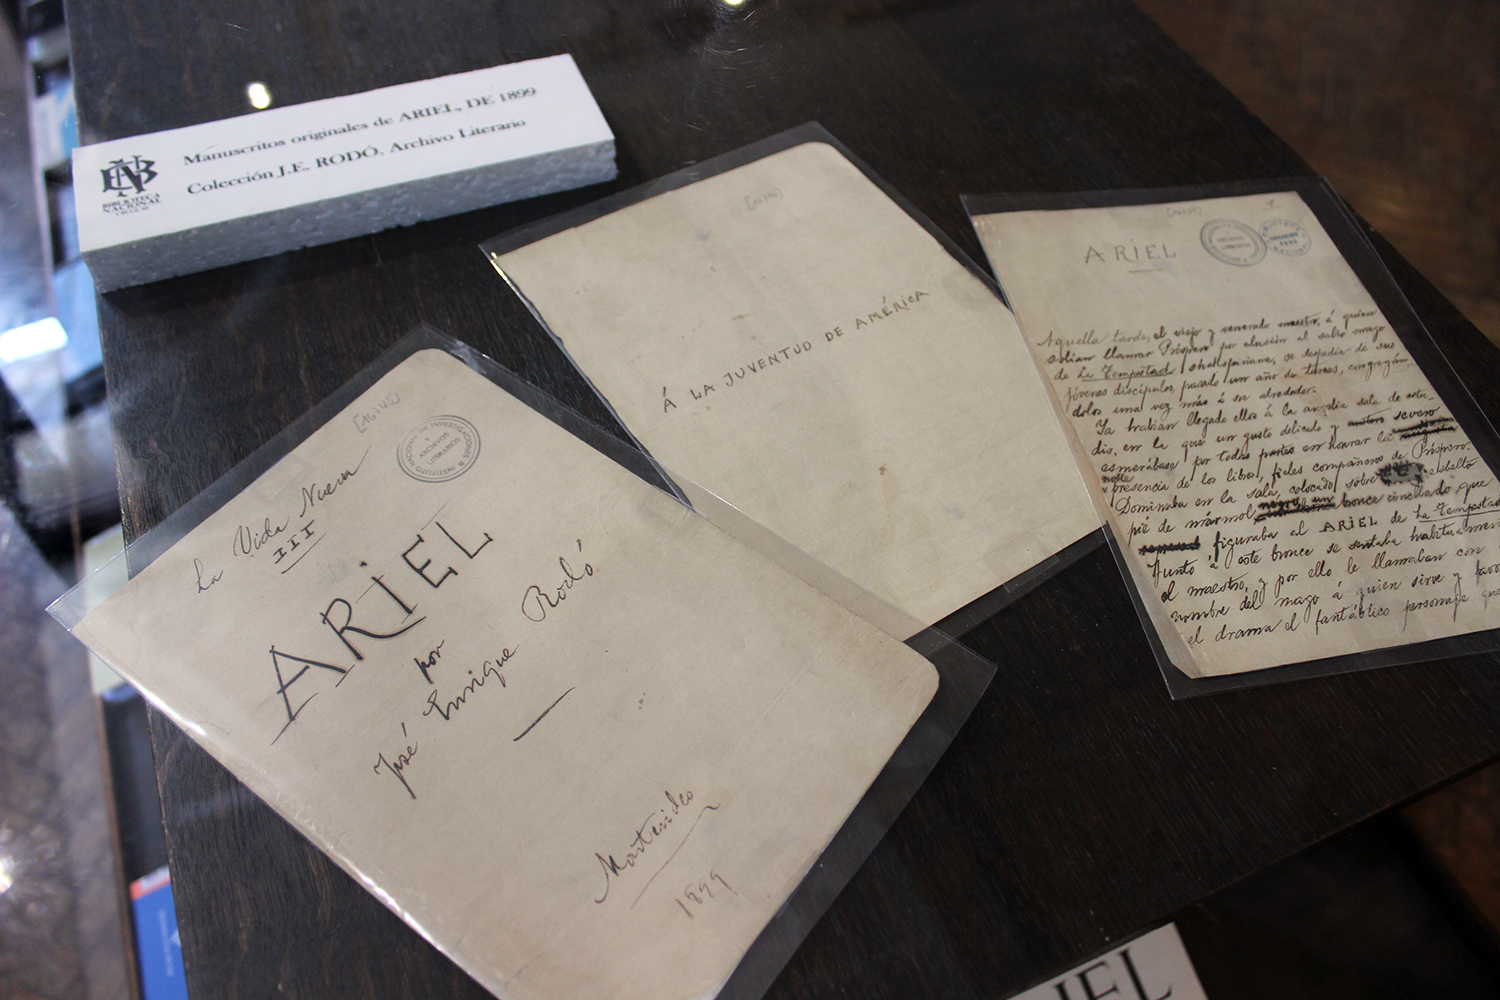 Manuscritos originales de ARIEL, DE 1899
Colección J.E. RODÓ. Archivo Literario
BIBLIOTECA
NACIONAL
La Vida Nueva
III
ARIEL
por
José Enrique Rodó
Montevideo
1899
INSTITUTO NACIONAL DE INVESTIGACIONES
Y
ARCHIVOS
LITERARIOS
Á LA JUVENTUD DE AMÉRICA
ARIEL
Aquella tarde, el viejo y venerado maestro, á quien
solian llamar Próspero por alusión al sabio mago
de La Tempestad shakspiriana, se despedia de sus
jóvenes discípulos, pasado un año de tareas, congregán
dolos una vez más á su alrededor.
Ya habian llegado ellos á la amplia sala de estu
dio, en la que un gusto delicado y austero severo
esmerábase por todas partes en honrar la
noble
presencia de los libros, fieles compañeros de Próspero.
Dominaba en la sala, colocado sobre esbelto
pié de mármol bronce cincelado que
figuraba al ARIEL de La Tempestad
Junto á este bronce se sentaba habitualmen
el maestro, y por ello le llamaban con
nombre del mago á quien sirve y favo
el drama el fantástico personaje que
IEL